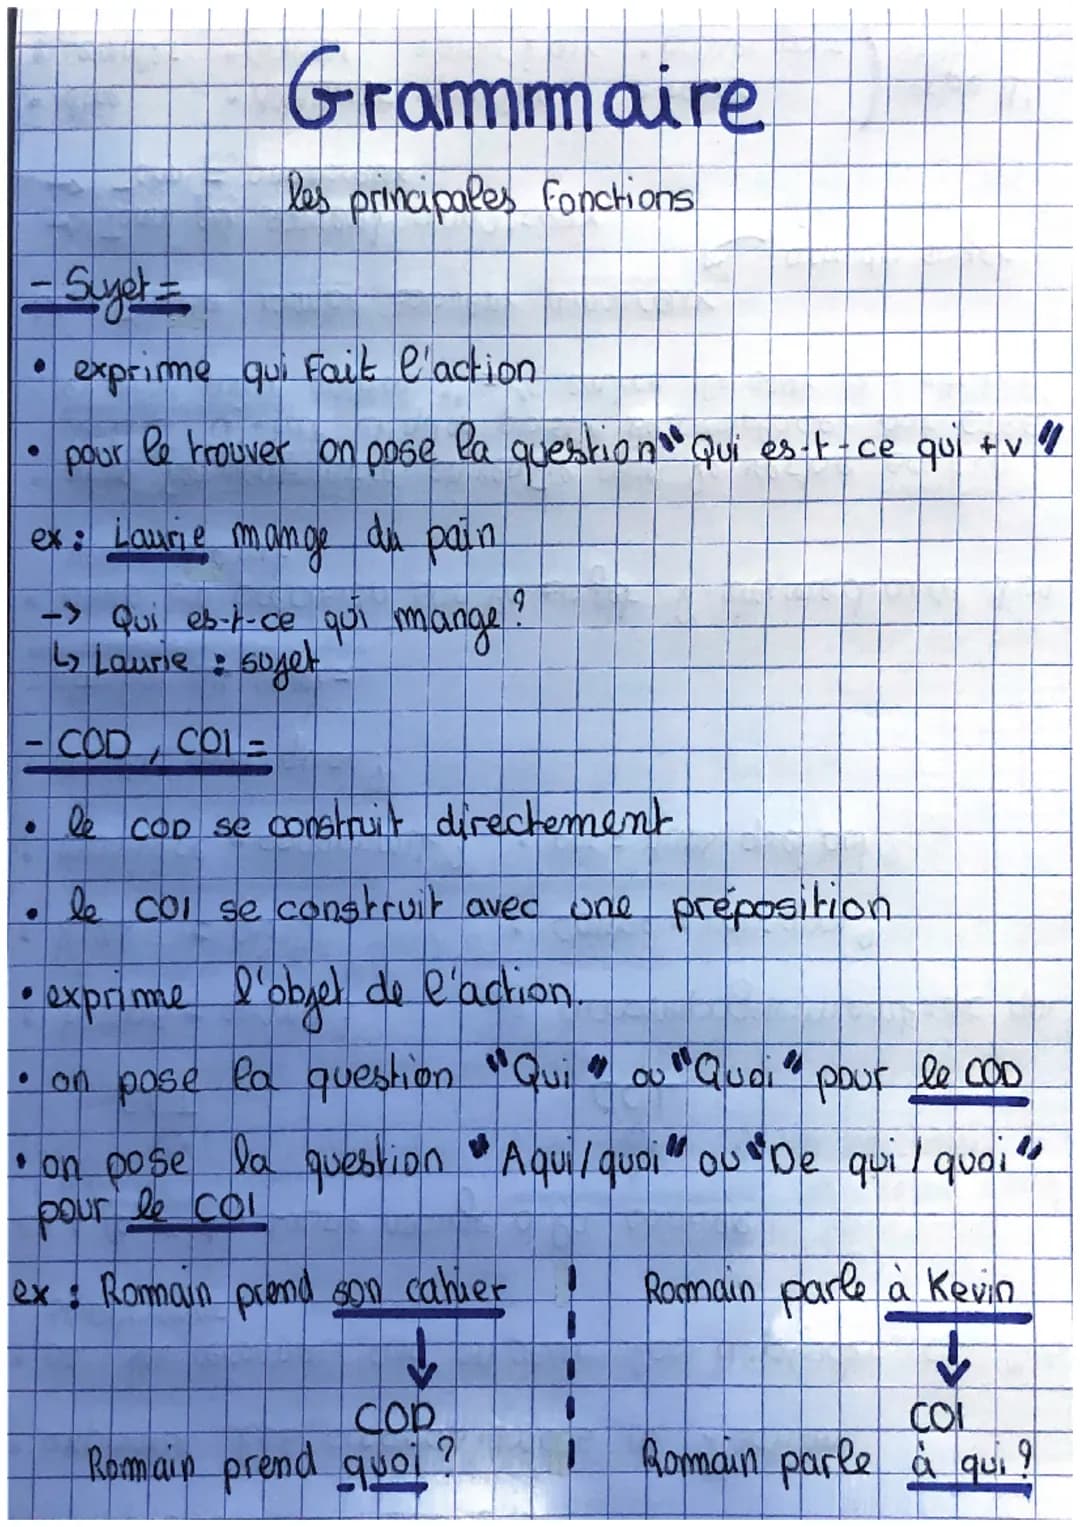 Grammaire
les principales fonctions
- Sujet =
• exprime qui fait l'action
• pour le trouver on pose la question "Qui es-t-ce qui + v"
ex : Laurie mange du pain
-> Qui es-t-ce qui mange ?
↳ Laurie : sujet
- COD, COI =
• le COD se construit directement
• le COI se construit avec une préposition
• exprime l'objet de l'action.
• on pose la question "Qui" ou "Quoi" pour le COD
• on pose la question "A qui/quoi" ou "De qui/quoi"
pour le COI
ex : Romain prend son cahier
COD
Romain prend quoi ?
Romain parle à Kevin
COI
Romain parle à qui ?